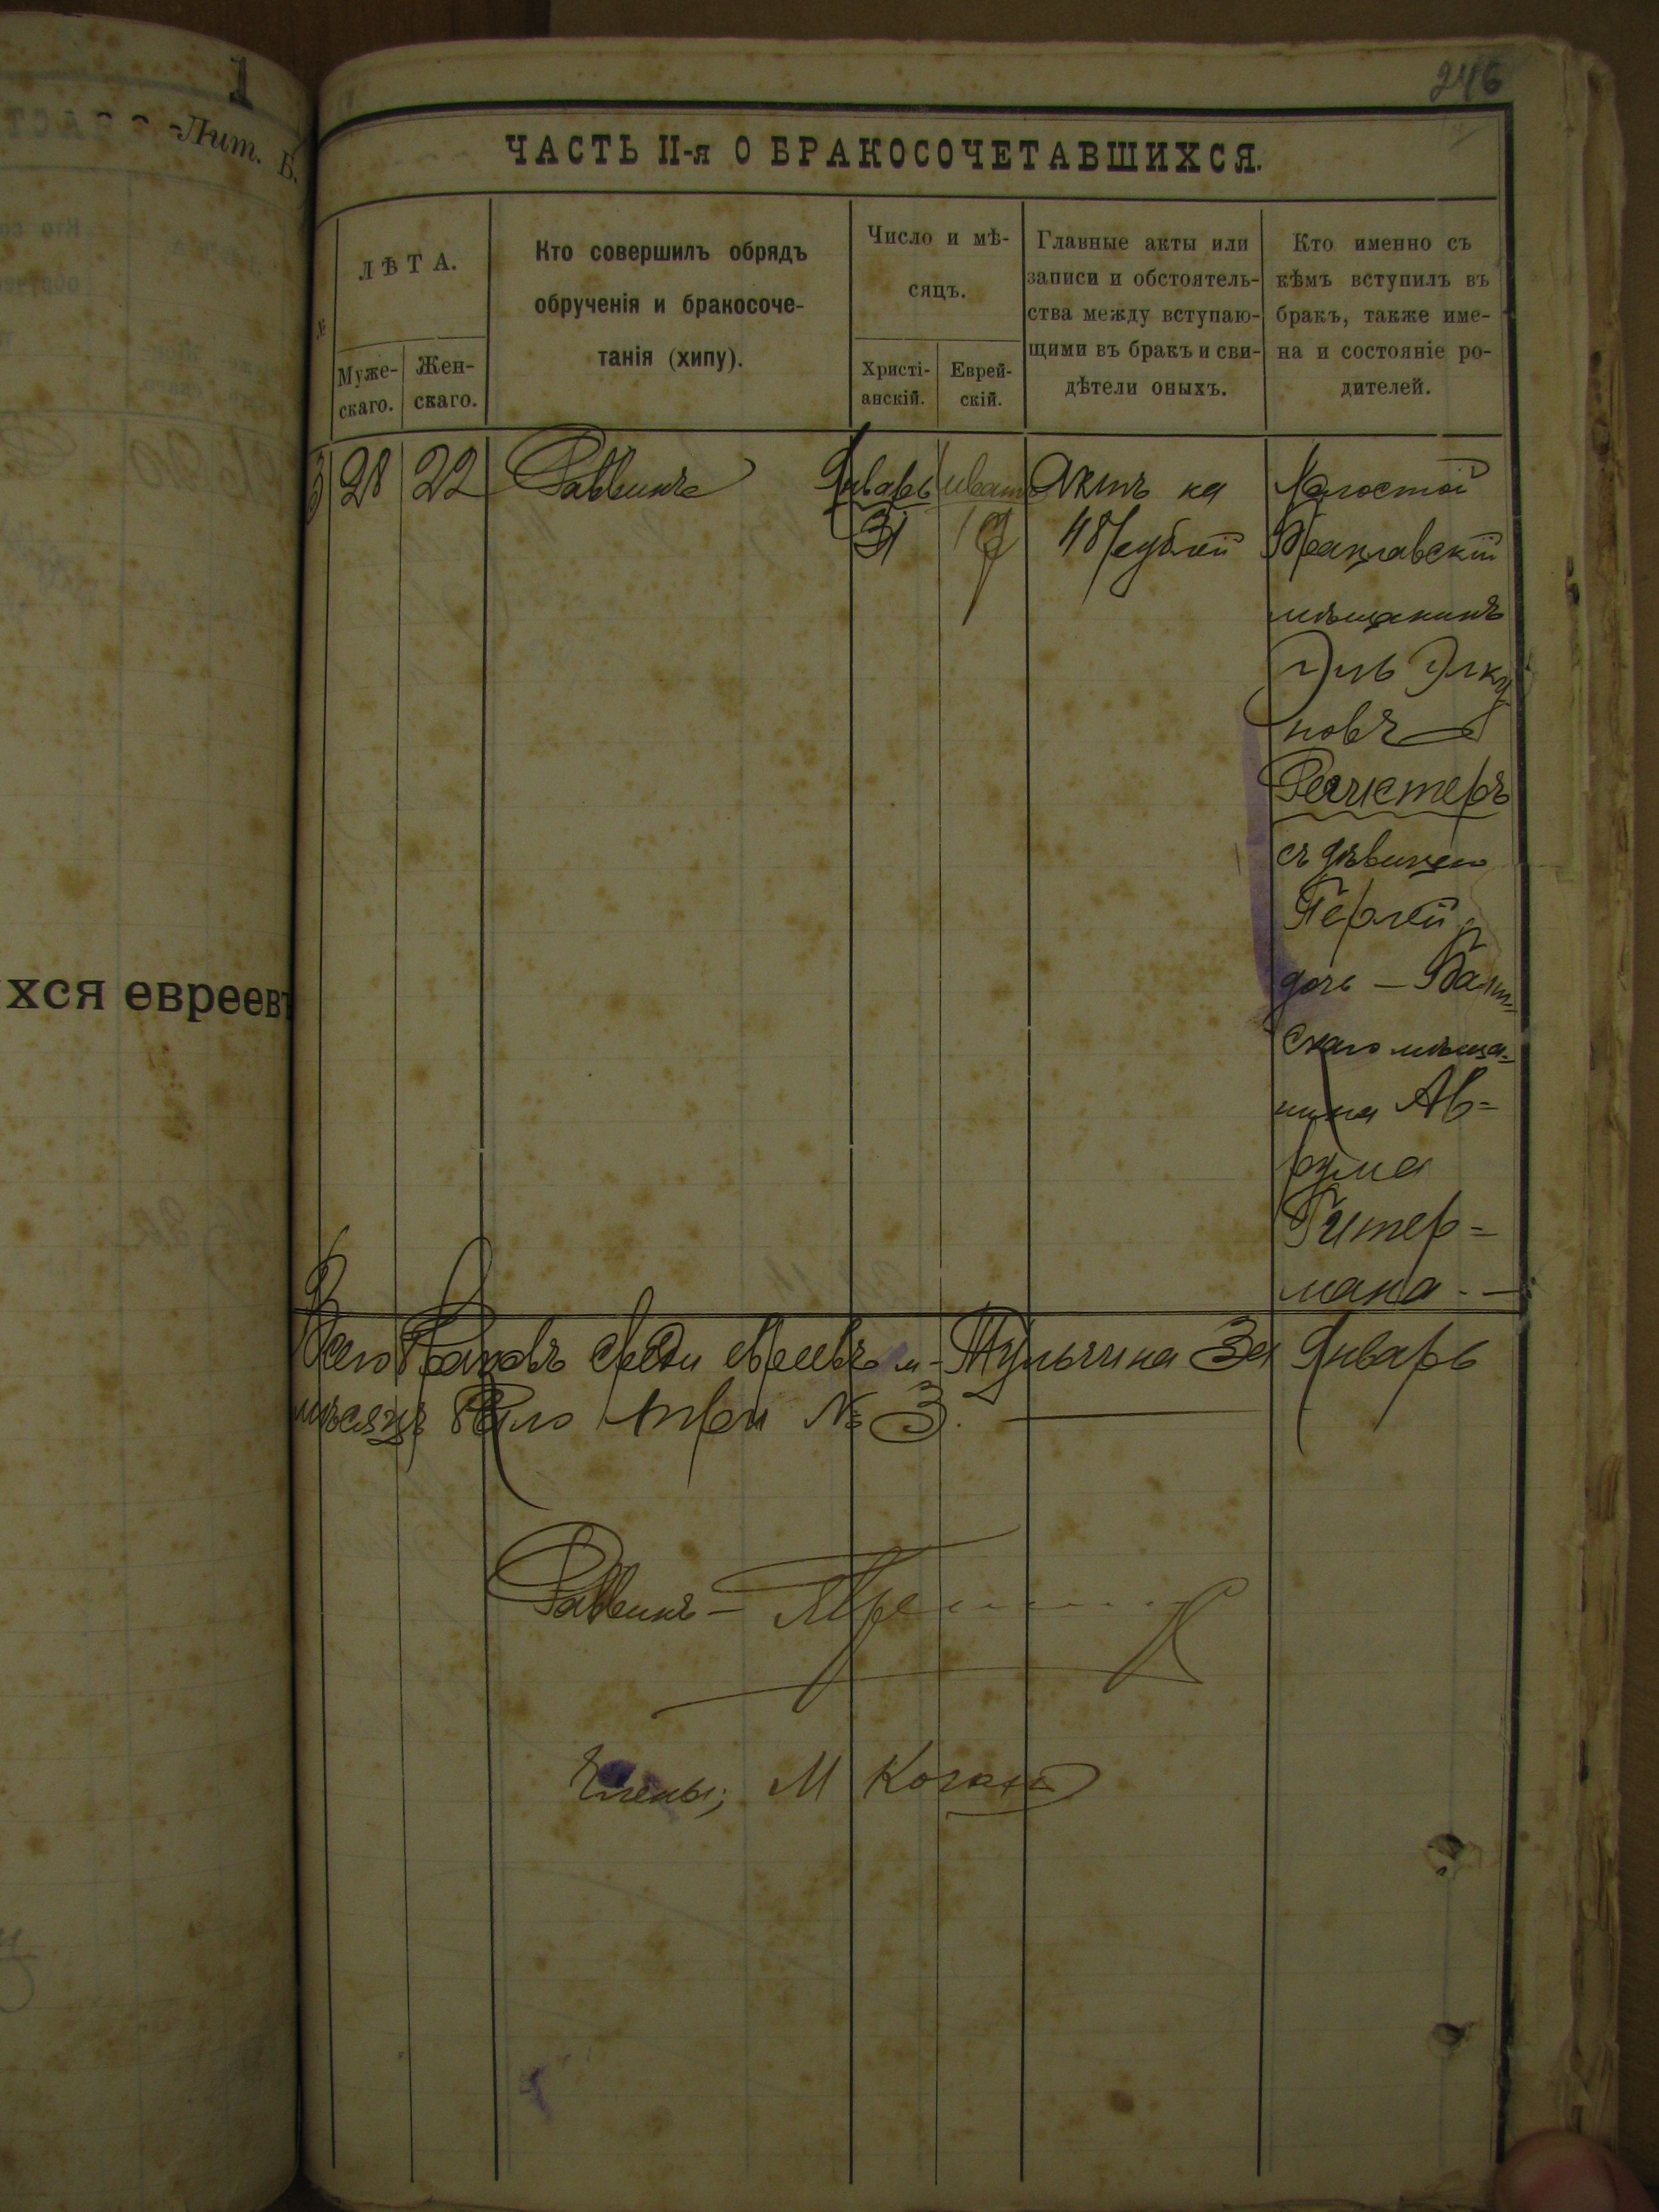 1
Лит. Б.
хся евреевъ
246
ЧАСТЬ II-я О БРАКОСОЧЕТАВШИХСЯ.
№
ЛѢТА.
Муже-
скаго.
Жен-
скаго.
Кто совершилъ обрядъ
обрученія и бракосоче-
танія (хипу).
Число и мѣ-
сяцъ.
Христі-
анскій.
Еврей-
скій.
Главные акты или
записи и обстоятель-
ства между вступаю-
щими въ бракъ и сви-
дѣтели оныхъ.
Кто именно съ
кѣмъ вступилъ въ
бракъ, также име-
на и состояніе ро-
дителей.
3
28
22
Раввинъ
Январь
31
Шватъ
Актъ на
48 рублей
Холостой
Брацлавскій
мѣщанинъ
Эль Элку
новъ
съ дѣвицею
Перлей
дочь — Балт
скаго мѣща-
нина Ав-
рума
Гитер-
мана. —
Всего Браковъ среди евреевъ м. Тульчина За Январь
мѣсяцъ Было три № 3.
Раввинъ —
Члены; М Коган